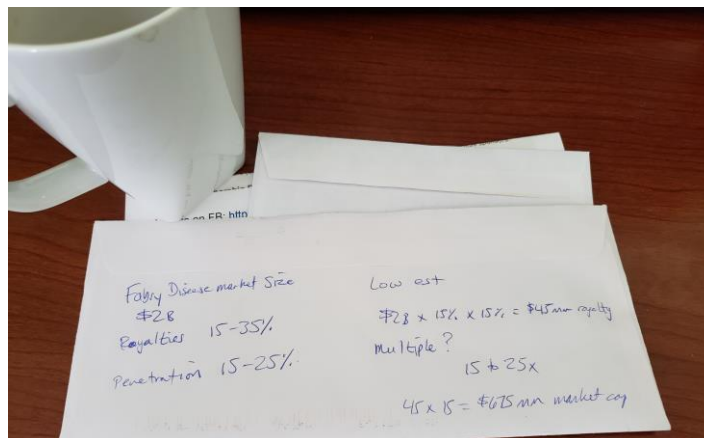 on FB: http
Fabry Disease market Size
$2B
Royalties 15-35%
Penetration 15-25%.
Low est
$2B x 15% x 15% = $45mm royalty
Multiple?
15 to 25x
45 x 15 = $675 mm market cap